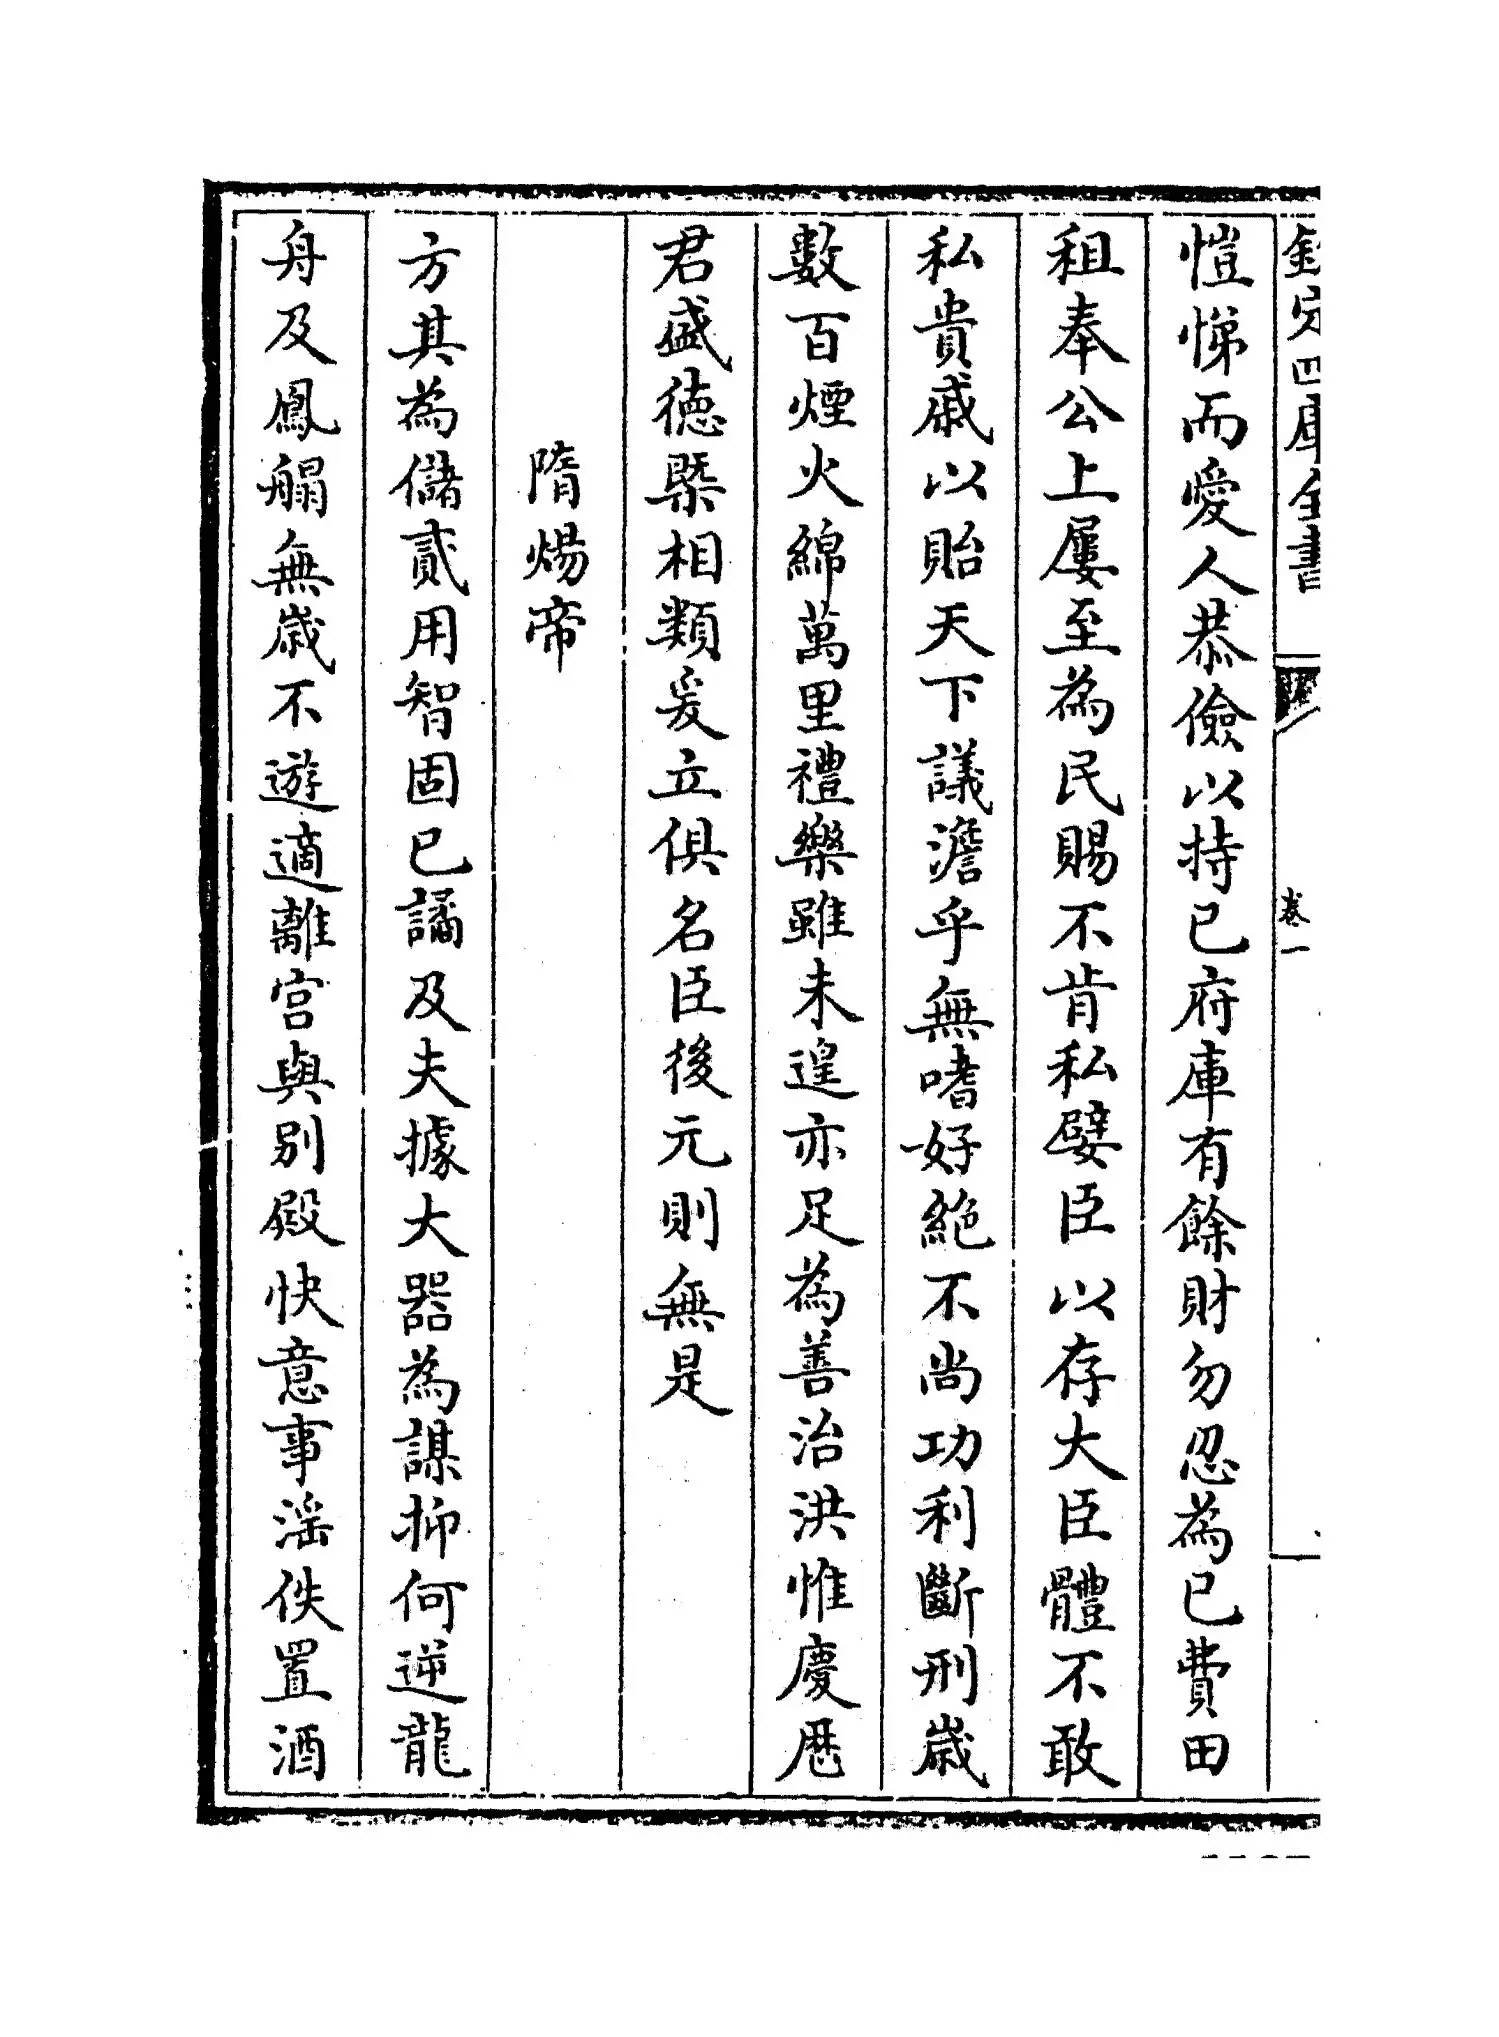 欽定四庫全書
卷一
愷悌而愛人恭儉以持已府庫有餘財勿忍為已費田
租奉公上屢至為民賜不肯私嬖臣以存大臣體不敢
私貴戚以貽天下議澹乎無嗜好絶不尚功利斷刑歳
數百煙火綿萬里禮樂雖未遑亦足為善治洪惟慶厯
君盛徳槩相類爰立俱名臣後元則無是
隋煬帝
方其為儲貳用智固已譎及夫據大器為謀抑何逆龍
舟及鳳䑽無歳不遊適離宫與别殿快意事滛佚置酒